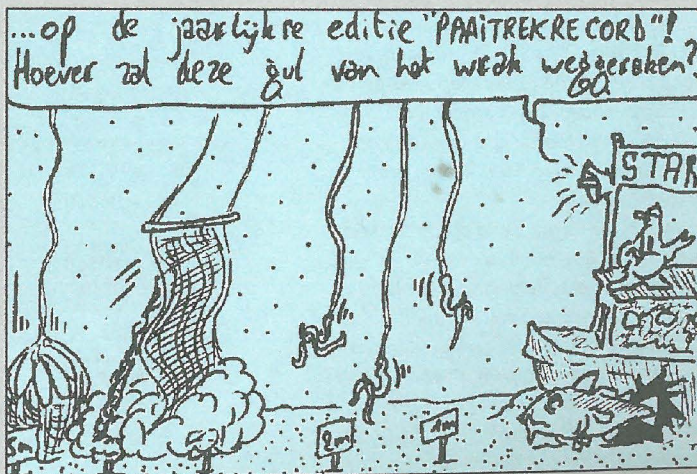 ...op de jaarlijkse editie "PAAITREKRECORD"!
Hoever zal deze gul van het wrak weggeraken?
STAR
2m
1m